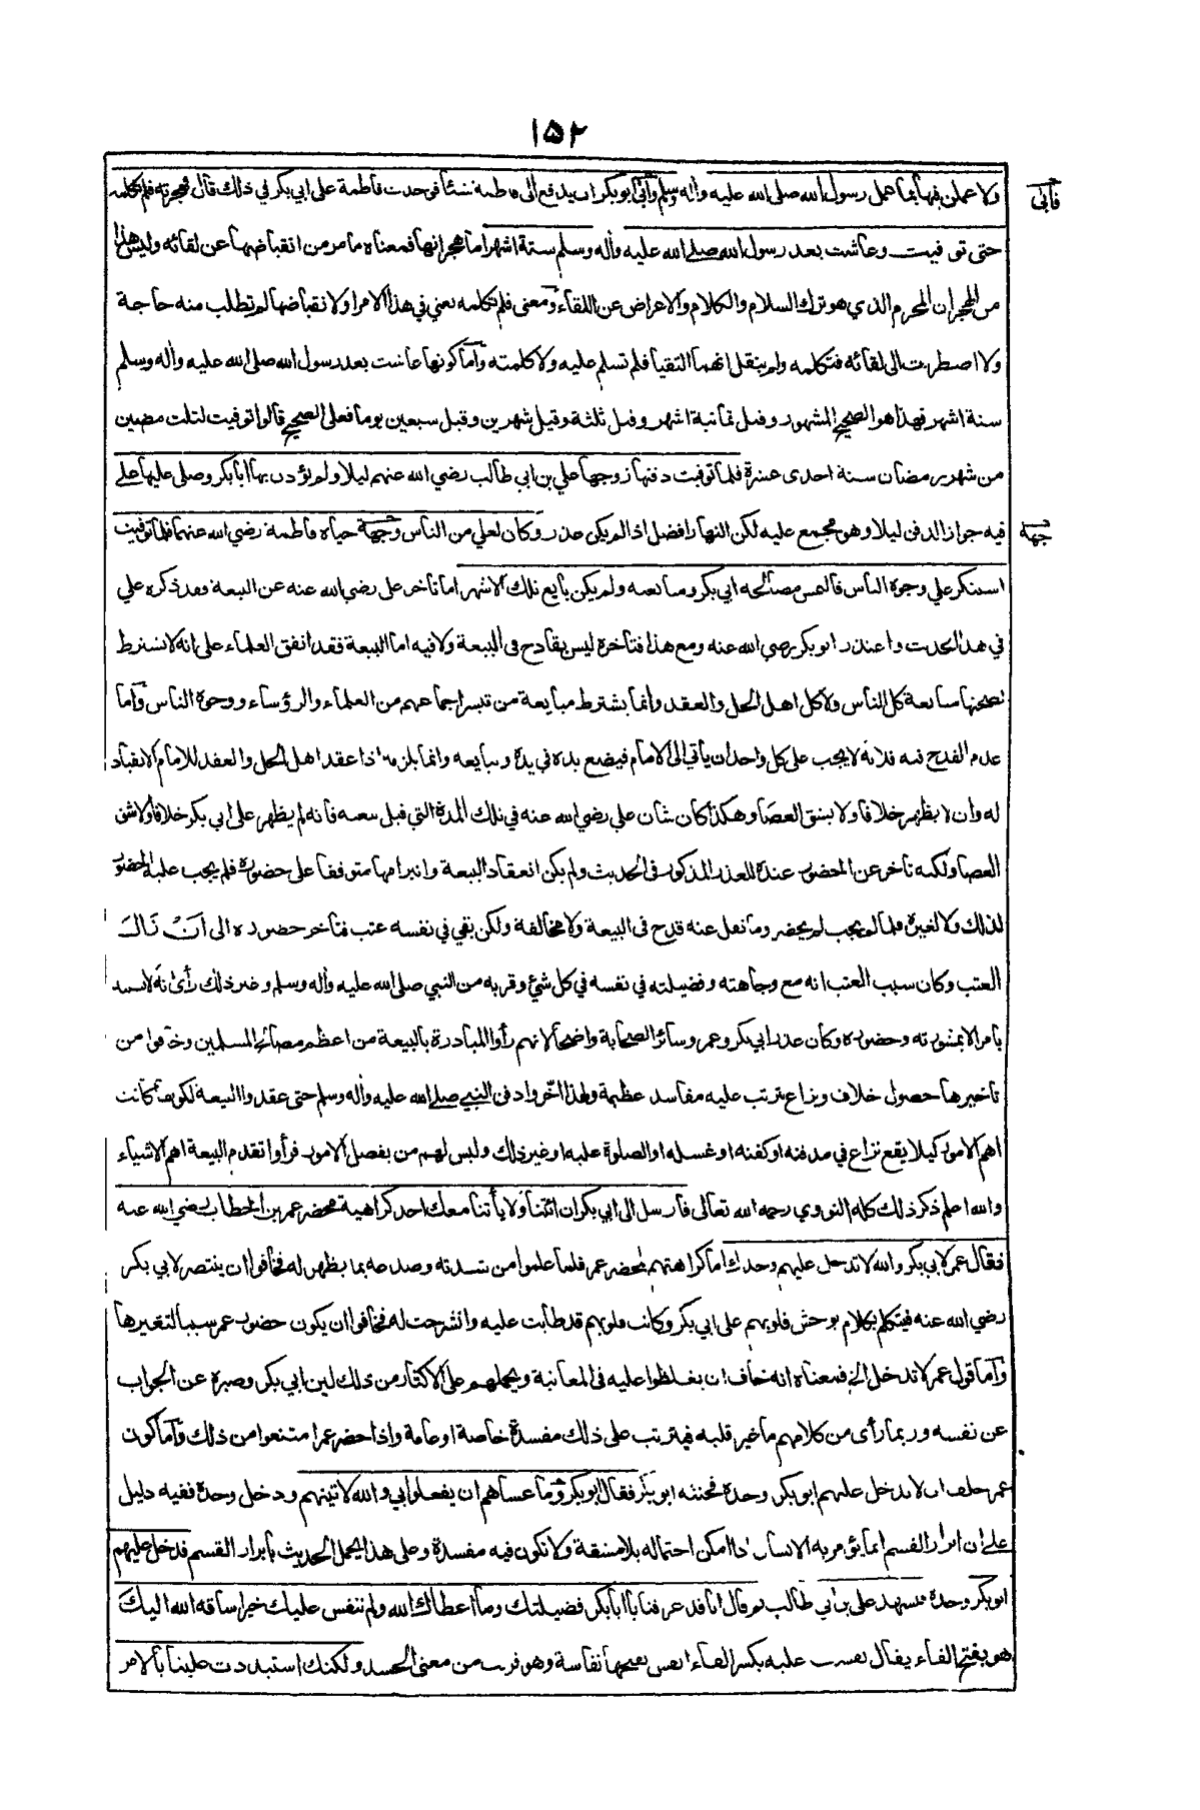 ١٥٢
ولاعملن فيها بما عمل رسول الله صلى الله عليه واله وسلم وأبى ابو بكر ان يدفع الى فاطمة شئا فوجدت فاطمة على ابي بكر في ذلك قال فهجرته فلم تكلمه
فأبى
حتى توفيت وعاشت بعد رسول الله صلى الله عليه واله وسلم ستة اشهر اما هجرانها فمعناه ما مر من انقباضها عن لقائه وليس هذا
من الهجران المحرم الذي هو ترك السلام والكلام والاعراض عن اللقاء ومعنى فلم تكلمه يعني في هذا الامر او لانقباضها لم تطلب منه حاجة
ولا اضطرت الى لقائه فتكلمه ولم ينقل انهما التقيا فلم تسلم عليه ولا كلمته وأما كونها عاشت بعد رسول الله صلى الله عليه واله وسلم
ستة اشهر فهذا هو الصحيح المشهور وقيل ثمانية اشهر وقيل ثلثة وقيل شهرين وقيل سبعين يوما فعلى الصحيح قالوا توفيت لثلث مضين
من شهر رمضان سنة احدى عشرة فلما توفيت دفنها زوجها علي بن ابي طالب رضي الله عنهم ليلا ولم يؤذن بها أبا بكر وصلى عليها علي
فيه جواز الدفن ليلا وهو مجمع عليه لكن النهار افضل اذا لم يكن عذر وكان لعلي من الناس وجهة حياة فاطمة رضي الله عنهما فلما توفيت
جهة
استنكر علي وجوه الناس فالتمس مصالحة ابي بكر ومبايعته ولم يكن بايع تلك الاشهر اما تأخر على رضي الله عنه عن البيعة فقد ذكره علي
في هذا الحديث واعتذر ابو بكر رضي الله عنه ومع هذا فتأخره ليس بقادح فى البيعة ولا فيه اما البيعة فقد اتفق العلماء على انه لا يشترط
لصحتها مبايعة كل الناس ولا كل اهل الحل والعقد وانما يشترط مبايعة من تيسر اجماعهم من العلماء والرؤساء ووجوه الناس وأما
عدم القدح فيه فلانه لا يجب على كل واحد ان يأتي الى الامام فيضع يده في يده ويبايعه وانما يلزمه اذا عقد اهل الحل والعقد للامام الانقياد
له وان لا يظهر خلافا ولا يشق العصا وهكذا كان شان علي رضي الله عنه في تلك المدة التي قبل بيعته فانه لم يظهر على ابي بكر خلافا ولا شق
العصا ولكنه تأخر عن الحضور عنده للعذر المذكور فى الحديث ولم يكن انعقاد البيعة وانبرامها متوقفا على حضوره فلم يجب عليه الحضور
لذلك ولا لغيره فلما لم يجب لم يحضر وما نقل عنه قدح فى البيعة ولا مخالفة ولكن بقي في نفسه عتب فتأخر حضوره الى أن زال
العتب وكان سبب العتب انه مع وجاهته وفضيلته في نفسه في كل شئ وقربه من النبي صلى الله عليه واله وسلم وغير ذلك رأى انه لا يستبد
بأمر الا بمشورته وحضوره وكان عذر ابي بكر وعمر وسائر الصحابة واضحا لانهم رأوا المبادرة بالبيعة من اعظم مصالح المسلمين وخافوا من
تأخيرها حصول خلاف ونزاع يترتب عليه مفاسد عظيمة ولهذا اخروا دفن النبي صلى الله عليه واله وسلم حتى عقدوا البيعة لكونها كانت
اهم الامور كيلا يقع نزاع في مدفنه او كفنه او غسله او الصلوة عليه او غير ذلك وليس لهم من يفصل الامور فرأوا تقدم البيعة اهم الاشياء
والله اعلم ذكر ذلك كله النووي رحمه الله تعالى فأرسل الى ابي بكر ان ائتنا ولا يأتنا معك احد كراهية محضر عمر بن الخطاب رضي الله عنه
فقال عمر لابي بكر والله لا تدخل عليهم وحدك اما كراهتهم لمحضر عمر فلما علموا من شدته وصدعه بما يظهر له فخافوا ان ينتصر لابي بكر
رضي الله عنه فيتكلم بكلام يوحش قلوبهم على ابي بكر وكانت قلوبهم قد طابت عليه وانشرحت له فخافوا ان يكون حضور عمر سببا لتغيرها
وأما قول عمر لا تدخل الخ فمعناه انه خاف ان يغلظوا عليه فى المعاتبة ويحملهم على الاكثار من ذلك لين ابي بكر وصبره عن الجواب
عن نفسه وربما رأى من كلامهم ما غير قلبه فيترتب على ذلك مفسدة خاصة او عامة واذا حضر عمر امتنعوا من ذلك وأما كون
عمر حلف ان لا يدخل عليهم ابو بكر وحده فحنثه ابو بكر فقال ابو بكر وما عساهم ان يفعلوا بي والله لآتينهم ودخل وحده ففيه دليل
على ان ابرار القسم انما يؤمر به الانسان اذا امكن احتماله بلا مشقة ولا تكون فيه مفسدة وعلى هذا يحمل الحديث بابرار القسم فدخل عليهم
ابو بكر وحده فتشهد على بن ابي طالب ثم قال انا قد عرفنا يا أبا بكر فضيلتك وما أعطاك الله ولم ننفس عليك خيرا ساقه الله اليك
هو بفتح الفاء يقال نفست عليه بكسر الفاء انفس بفتحها نفاسة وهو قريب من معنى الحسد ولكنك استبددت علينا بالامر